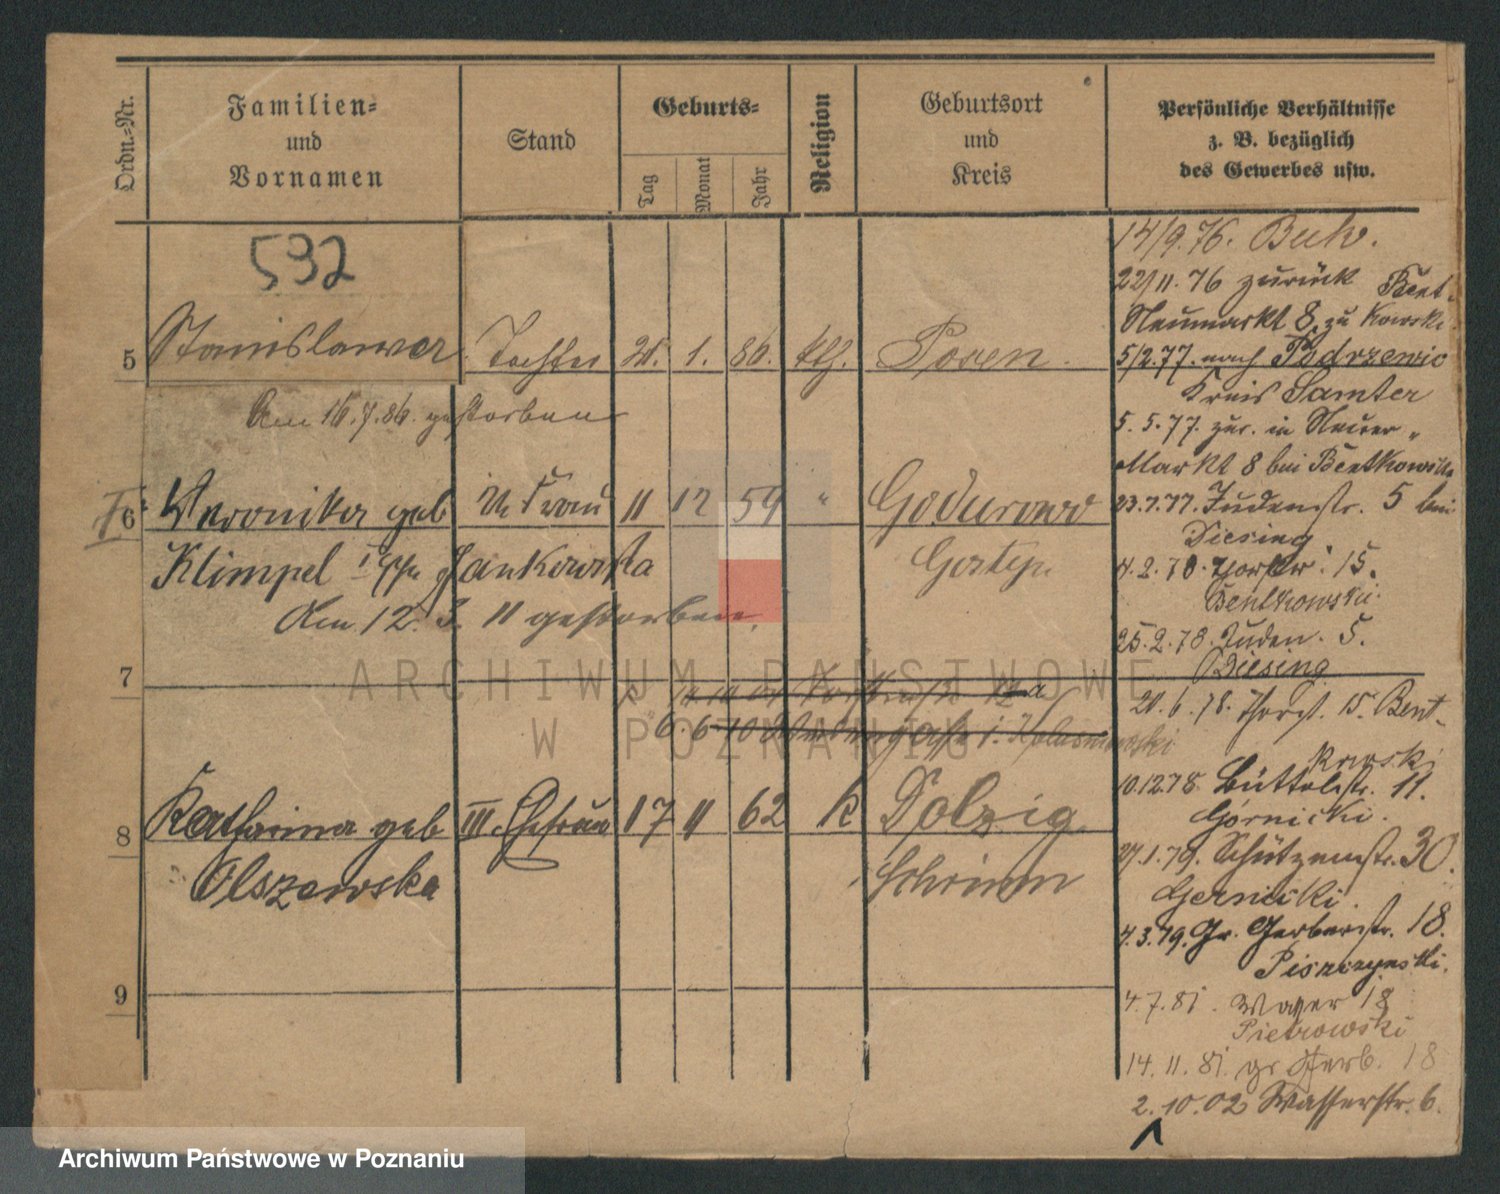 Ordn.-Nr.
Familien-
und
Vornamen
Stand
Geburts-
Tag
Monat
Jahr
Religion
Geburtsort
und
Kreis
Persönliche Verhältnisse
z. B. bezüglich
des Gewerbes usw.
532
5 Stanislawa Tochter 1. 86. kth. Posen.
Am 16.7.86. gestorben
6 Veronika geb II. Frau 11 12 59 " Godurowo
Klimpel Jankowska Gostyn
Am 12. 3. 11 gestorben.
7
6. 6 10
8 Katharina geb III. Ehefrau 17 11 62 k Dolzig
Olszewska Schrimm
9
14/9.76. Buk.
22/11.76 zurück Bent-
Neumarkt 8. zu kowski
5/2.77. nach Podrzewie
Kreis Samter
5.5.77. zur. in Neuer
Markt 8 bei Bentkowski
23.7.77. Judenstr. 5 bei
Diesing
4.2.78. 15.
Bentkowski.
25.2.78. Juden. 5.
Diesing
20.6.78. 15. Bent-
kowski
10.12.78. Büttelstr. 11.
Górnicki.
1.79. Schützenstr. 30.
Gernicki.
4.3.79. Gr. Gerberstr. 18.
4.7.81. 18
Pietrowski
14.11.81. gr Gerb. 18
2.10.02 Wasserstr. 6.
ARCHIWUM PAŃSTWOWE
W POZNANIU
Archiwum Państwowe w Poznaniu